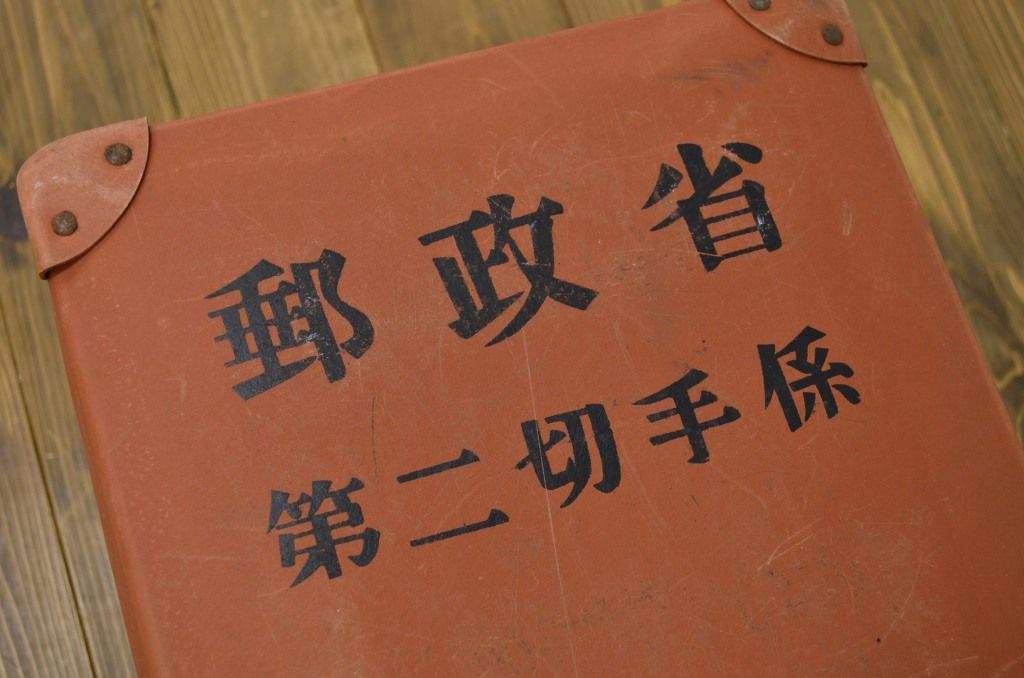 郵政省
第二切手係